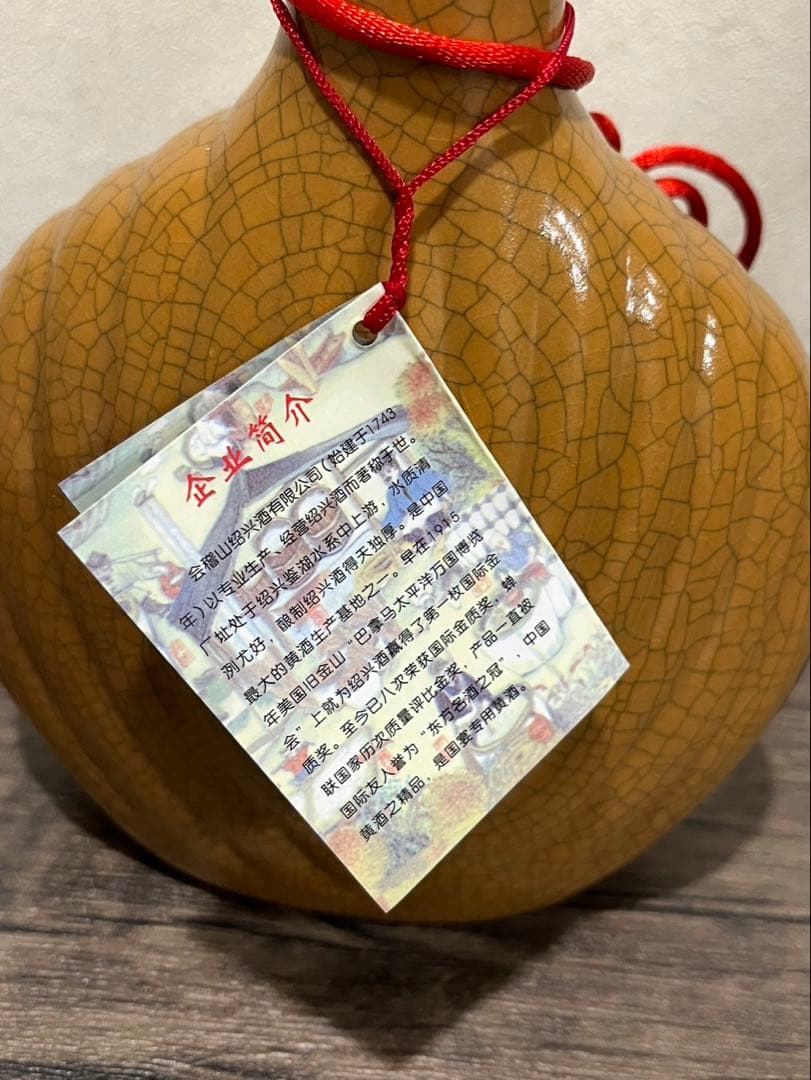 企业简介
会稽山绍兴酒有限公司(始建于1743
年)以专业生产、经营绍兴酒而著称于世。
厂址处于绍兴鉴湖水系中上游,水质清
洌尤好,酿制绍兴酒得天独厚。是中国
最大的黄酒生产基地之一。早在1915
年美国旧金山“巴拿马太平洋万国博览
会”上就为绍兴酒赢得了第一枚国际金
质奖。至今已八次荣获国际金质奖,蝉
联国家历次质量评比金奖,产品一直被
国际友人誉为“东方名酒之冠”,中国
黄酒之精品,是国宴专用黄酒。